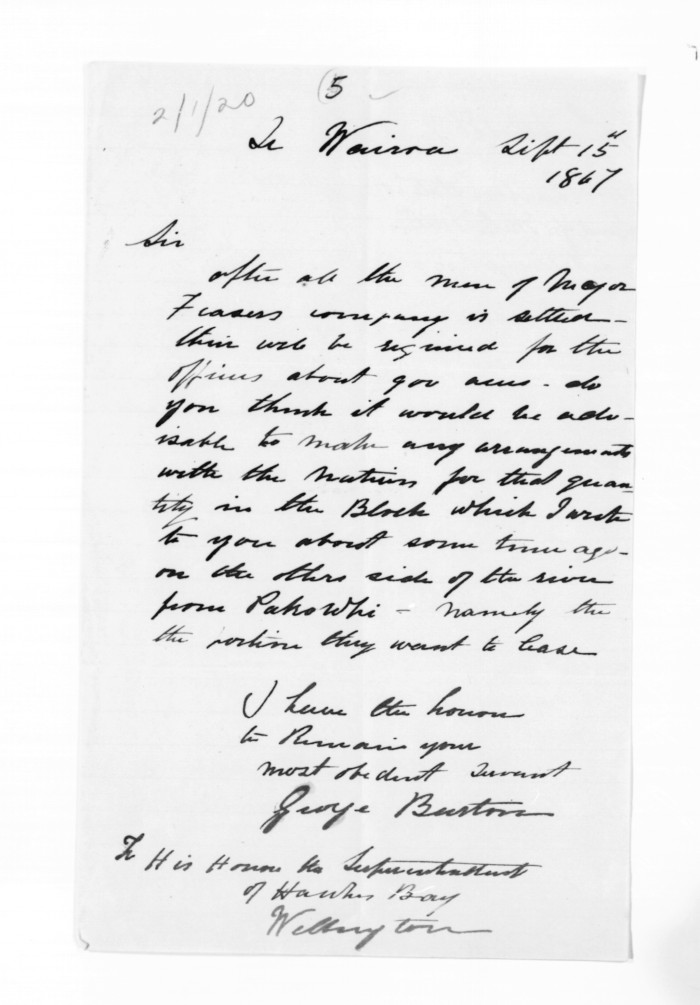 5
2/1/20
Te Wairoa Sept 15th
1867
Sir
after all the men of Major
Frasers company is settled -
their will be reqired for the
offices about 900 acres - do
you think it would be adv-
isable to make any arrangements
with the natives for that quan-
tity in the Block which I wrote
to you about some time ago -
on the others side of the river
from Pakowhi - namely the
the portion they want to lease
I have the honour
to Remain your
most obedent servant
George Burton
To His Honour the Superintendent
of Hawkes Bay
Wellington